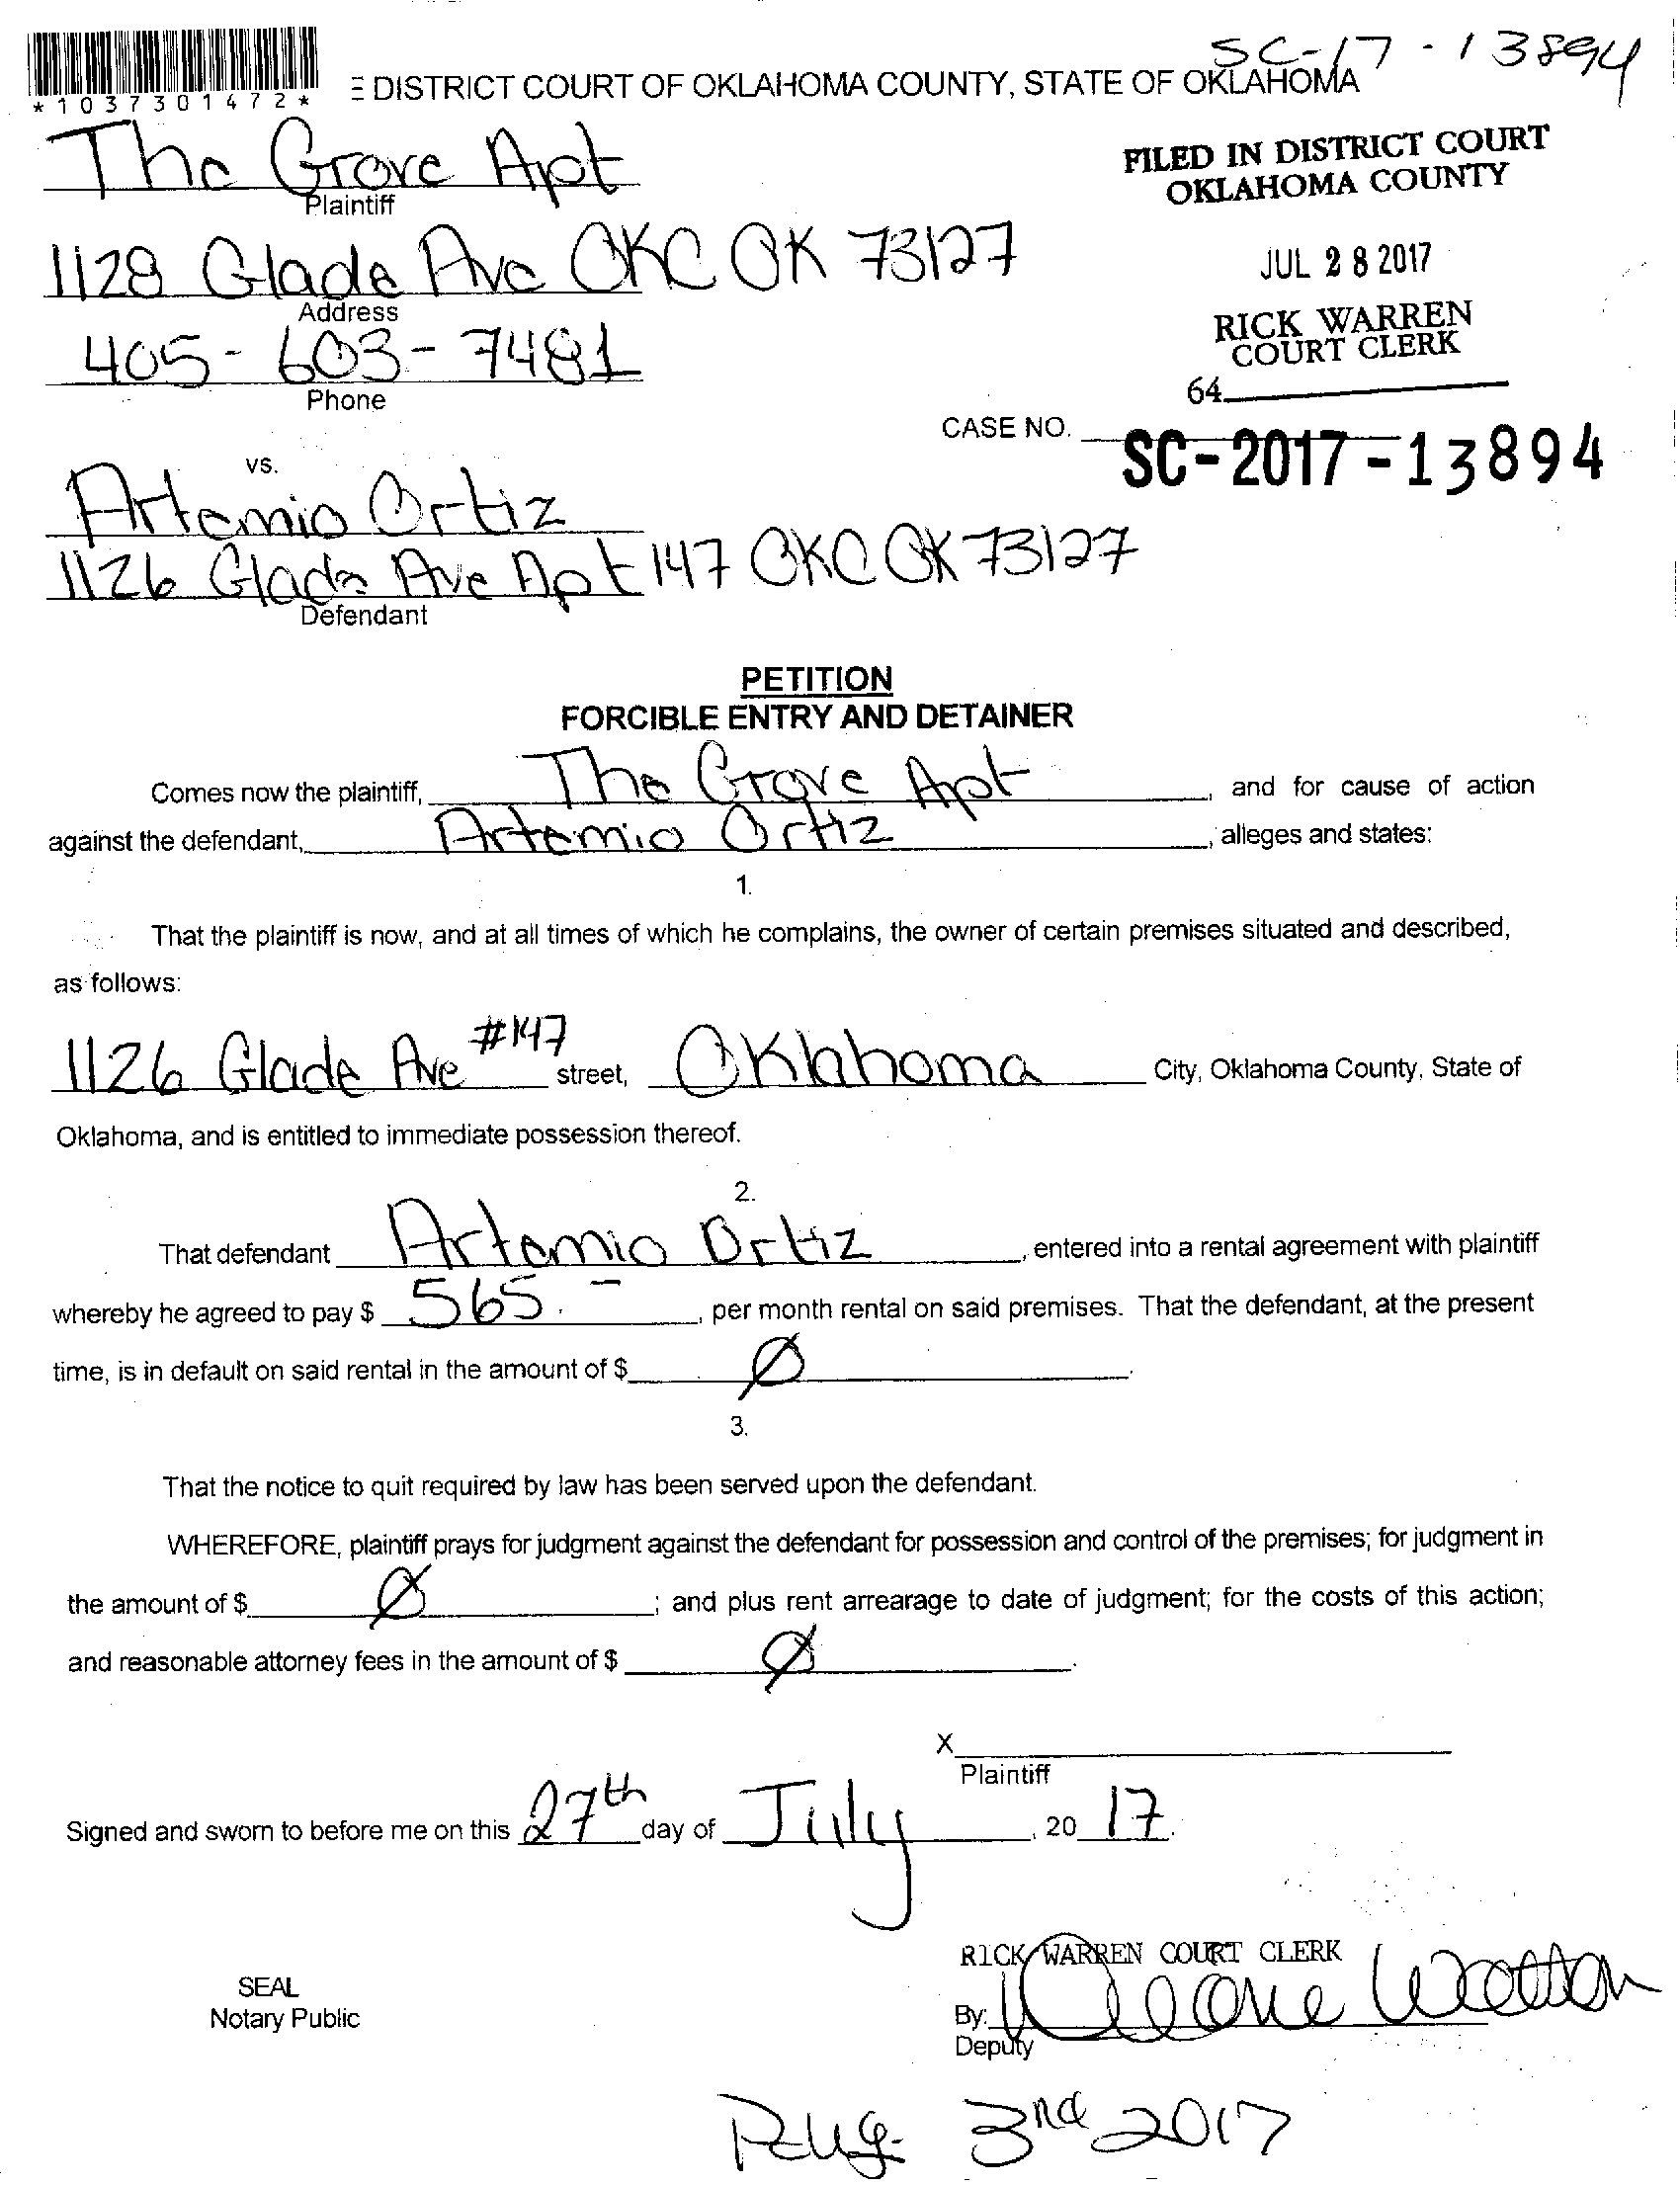 SC-17-13894
*1037301472*
E DISTRICT COURT OF OKLAHOMA COUNTY, STATE OF OKLAHOMA
The Grove Apt
Plaintiff
FILED IN DISTRICT COURT
OKLAHOMA COUNTY
1128 Glade Ave OKC OK 73127
Address
JUL 28 2017
405-603-7481
Phone
RICK WARREN
COURT CLERK
64
CASE NO. SC-2017-13894
vs.
Artemio Ortiz
1126 Glade Ave Apt 147 OKC OK 73127
Defendant
PETITION
FORCIBLE ENTRY AND DETAINER
Comes now the plaintiff, The Grove Apt, and for cause of action
against the defendant, Artemio Ortiz, alleges and states:
1.
That the plaintiff is now, and at all times of which he complains, the owner of certain premises situated and described,
as follows:
1126 Glade Ave #147 street, Oklahoma City, Oklahoma County, State of
Oklahoma, and is entitled to immediate possession thereof.
2.
That defendant Artemio Ortiz, entered into a rental agreement with plaintiff
whereby he agreed to pay $ 565.-, per month rental on said premises. That the defendant, at the present
time, is in default on said rental in the amount of $ Ø.
3.
That the notice to quit required by law has been served upon the defendant.
WHEREFORE, plaintiff prays for judgment against the defendant for possession and control of the premises; for judgment in
the amount of $ Ø; and plus rent arrearage to date of judgment; for the costs of this action;
and reasonable attorney fees in the amount of $ Ø.
X
Plaintiff
Signed and sworn to before me on this 27th day of July, 20 17.
RICK WARREN COURT CLERK
SEAL
Notary Public
By:
Deputy
Aug. 3rd 2017